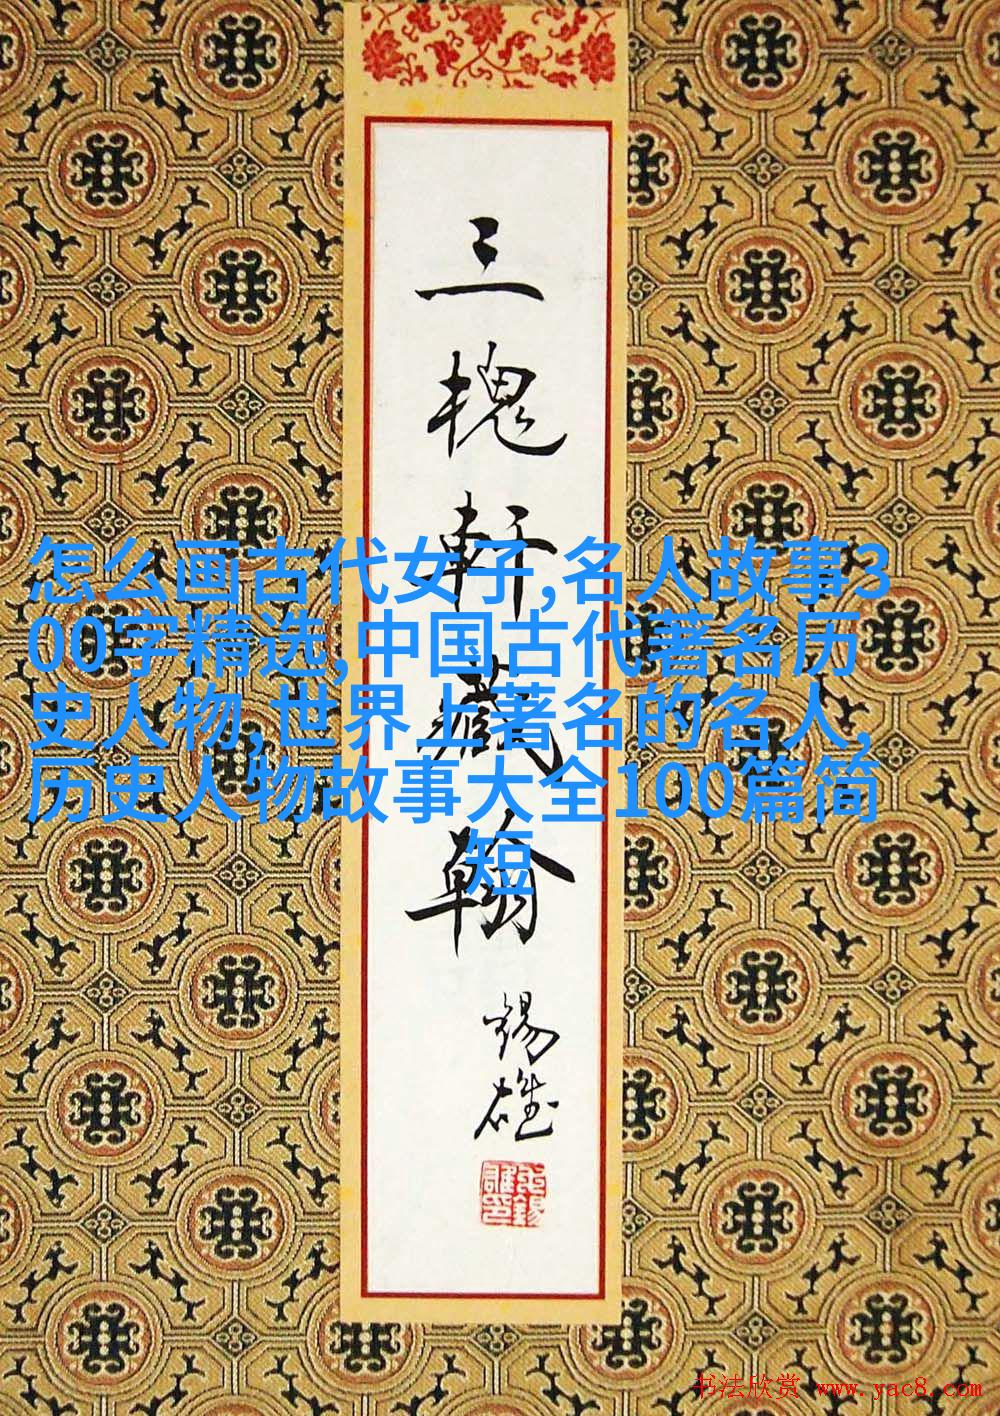 三槐軒藏翰
锡雄
怎么画古代女子,名人故事3
00字精选,中国古代著名历
史人物,世界上著名的名人,
历史人物故事大全100篇简
短
书法欣赏 www.yac8.com